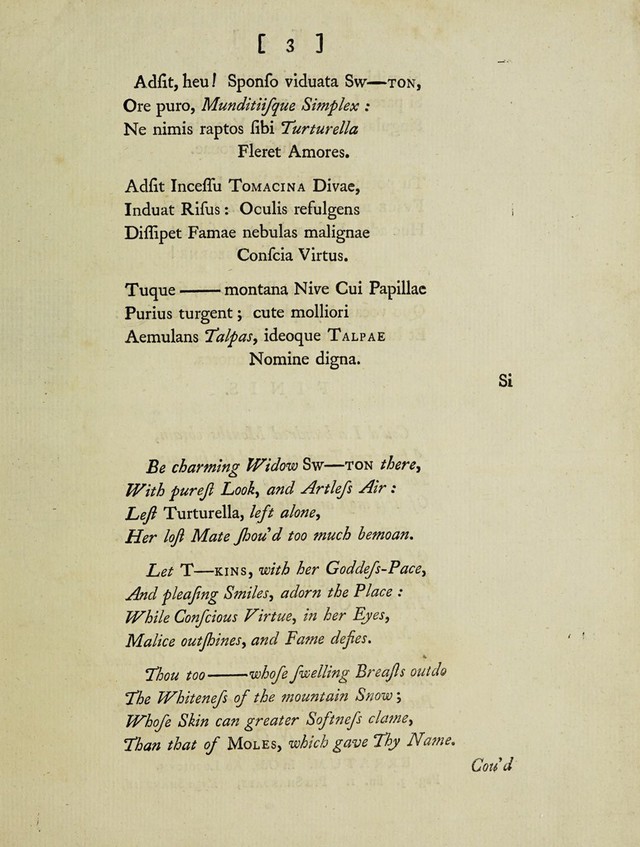 [ 3 ]
Adſit, heu! Sponſo viduata Sw—TON,
Ore puro, Munditiiſque Simplex :
Ne nimis raptos ſibi Turturella
Fleret Amores.
Adſit Inceſſu TOMACINA Divae,
Induat Riſus : Oculis refulgens
Diſſipet Famae nebulas malignae
Conſcia Virtus.
Tuque —— montana Nive Cui Papillae
Purius turgent ; cute molliori
Aemulans Talpas, ideoque TALPAE
Nomine digna.
Si
Be charming Widow Sw—TON there,
With pureſt Look, and Artleſs Air :
Leſt Turturella, left alone,
Her loſt Mate ſhou'd too much bemoan.
Let T—KINS, with her Goddeſs-Pace,
And pleaſing Smiles, adorn the Place :
While Conſcious Virtue, in her Eyes,
Malice outſhines, and Fame defies.
Thou too——whoſe ſwelling Breaſts outdo
The Whiteneſs of the mountain Snow ;
Whoſe Skin can greater Softneſs clame,
Than that of MOLES, which gave Thy Name.
Cou'd